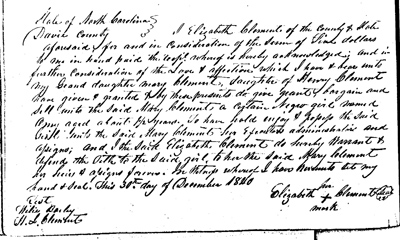 State of North Carolina
Davie County } I Elizabeth Clement of the County & State
aforesaid, for and in Consideration of the Sum of Five dollars
to me in hand paid the rect. whereof is hereby acknowledged; and in
further Consideration of the Love & affection which I have & bear unto
my Grand daughter Mary Clement, daughter of Henry Clement
have given & granted & by these presents do give grant & bargain and
Sell unto the Said Mary Clement a Certain Negro girl named
Amy aged about years. To have hold enjoy & possess the Said
unto the Said Mary Clement her Executors administrators and
assigns; and I the Said Elizabeth Clement do hereby Warrant &
defend the title to the Said girl, to her the Said Mary Clement
her heirs & assigns forever. In Witness whereof I have hereunto set my
hand & Seal. This 30th day of December 1840
Test
Elizabeth her + mark Clement Seal
Wiley
H. L. Clement